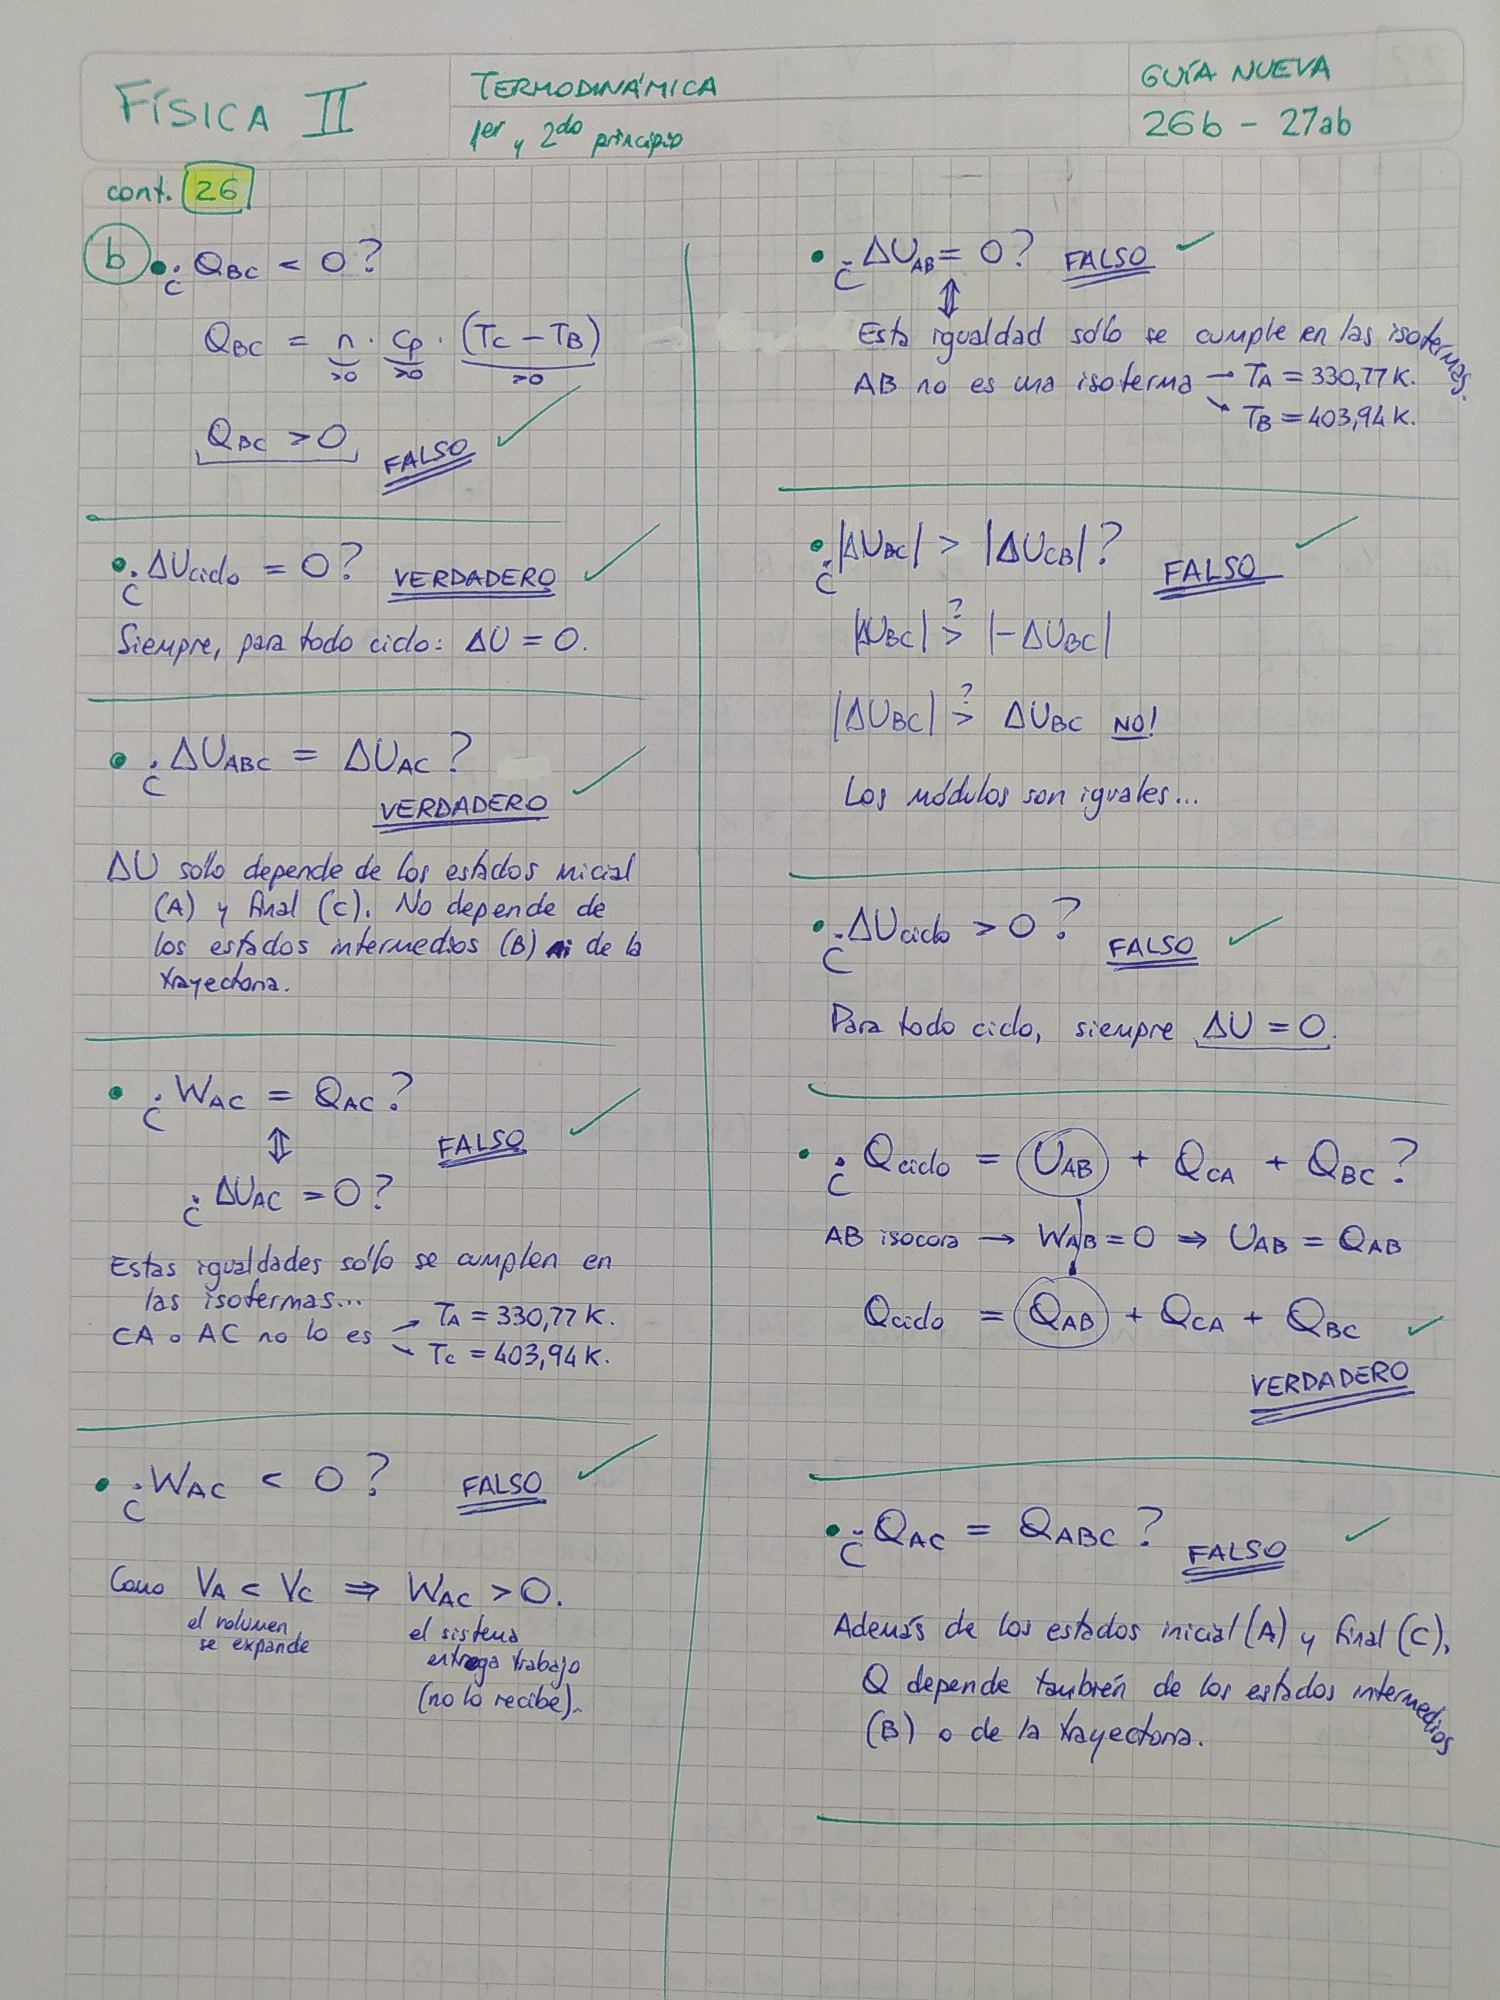 FÍSICA II
TERMODINÁMICA
1er y 2do principio
GUÍA NUEVA
26b - 27ab
cont. 26
b • ¿QBC < 0?
QBC = n . cp . (TC - TB)
>0 >0 >0
QBC > 0 FALSO ✓
• ¿ΔUciclo = 0? VERDADERO ✓
Siempre, para todo ciclo: ΔU = 0.
• ¿ΔUABC = ΔUAC?
VERDADERO ✓
ΔU solo depende de los estados inicial
(A) y final (C). No depende de
los estados intermedios (B) ni de la
trayectoria.
• ¿WAC = QAC?
⇕ FALSO ✓
¿ΔUAC = 0?
Estas igualdades sólo se cumplen en
las isotermas...
CA o AC no lo es → TA = 330,77 K.
→ TC = 403,94 K.
• ¿WAC < 0? FALSO ✓
Como VA < VC ⇒ WAC > 0.
el volumen
se expande
el sistema
entrega trabajo
(no lo recibe).
• ¿ΔUAB = 0? FALSO ✓
⇕
Esta igualdad sólo se cumple en las isotermas.
AB no es una isoterma → TA = 330,77 K.
→ TB = 403,94 K.
• ¿|ΔUBC| > |ΔUCB|?
FALSO ✓
|ΔUBC| >? |-ΔUBC|
|ΔUBC| >? ΔUBC NO!
Los módulos son iguales...
• ¿ΔUciclo > 0? FALSO ✓
Para todo ciclo, siempre ΔU = 0.
• ¿Qciclo = UAB + QCA + QBC?
AB isocora → WAB = 0 ⇒ UAB = QAB
Qciclo = QAB + QCA + QBC ✓
VERDADERO
• ¿QAC = QABC? FALSO ✓
Además de los estados inicial (A) y final (C),
Q depende también de los estados intermedios
(B) o de la trayectoria.